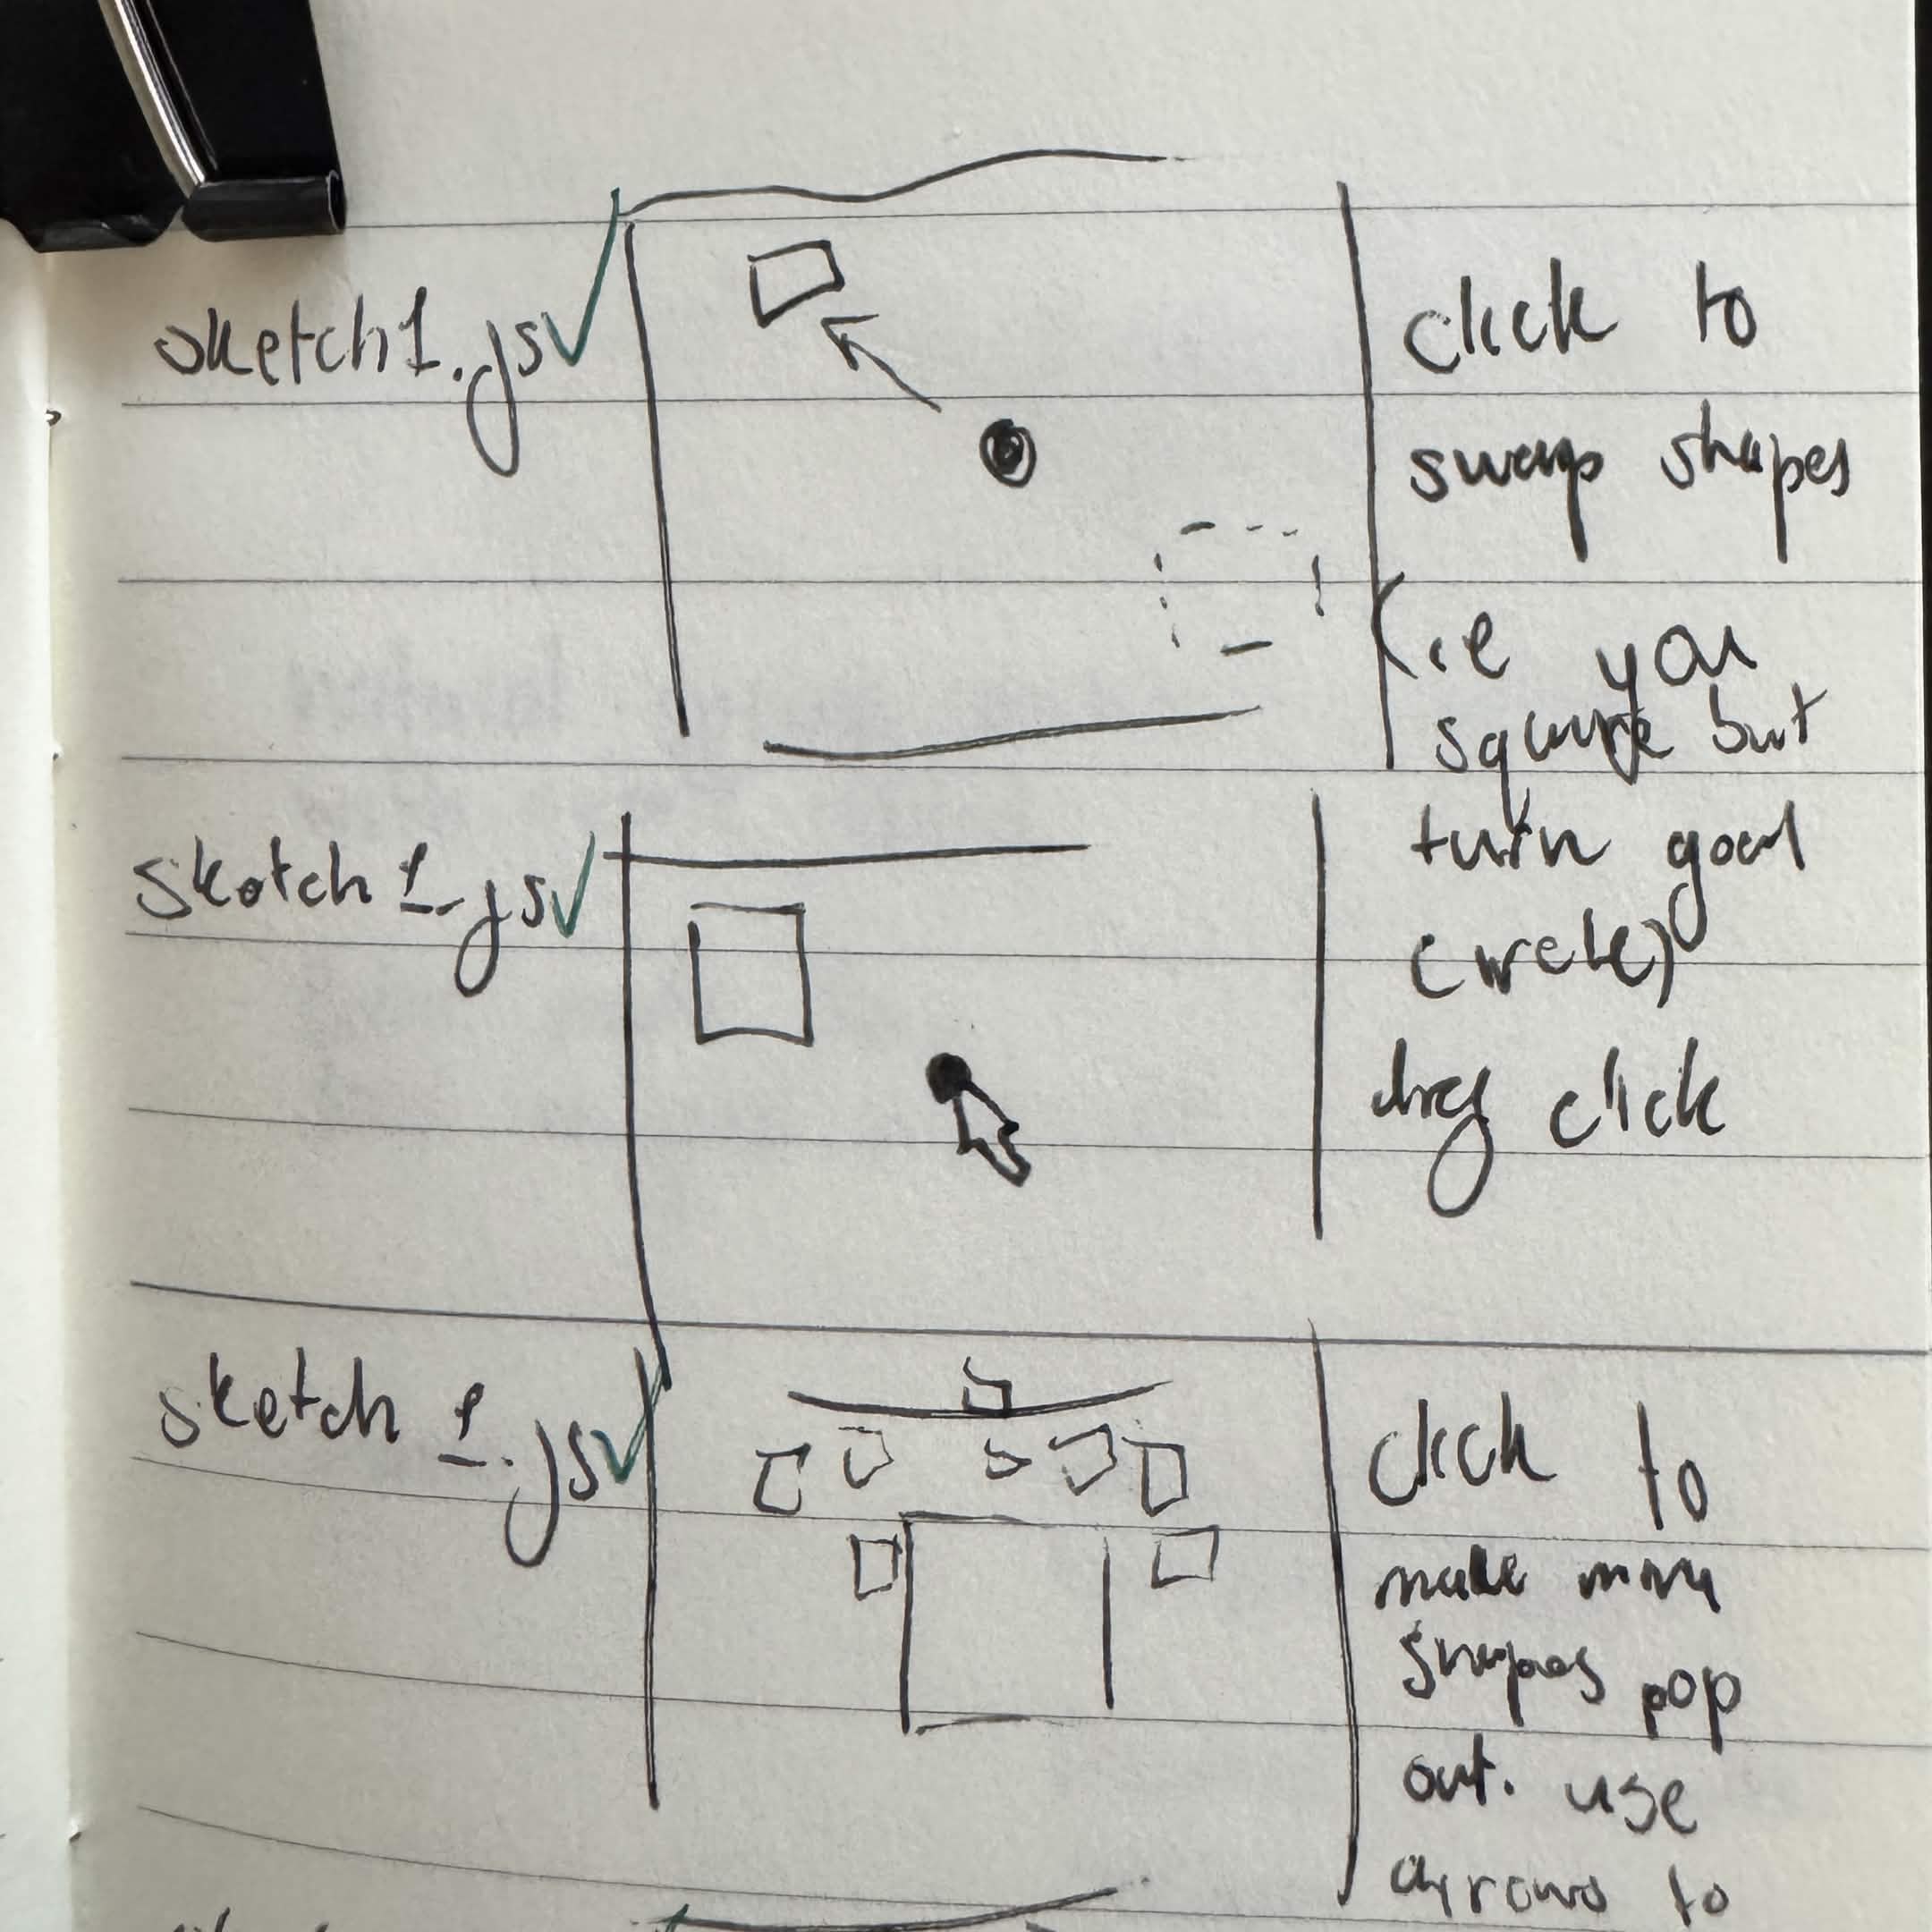 sketch1.js
click to
swap shapes
(ie you
square but
turn goal
circle)
sketch 1.js
drag click
sketch 1.js
click to
make more
shapes pop
out. use
arrows to